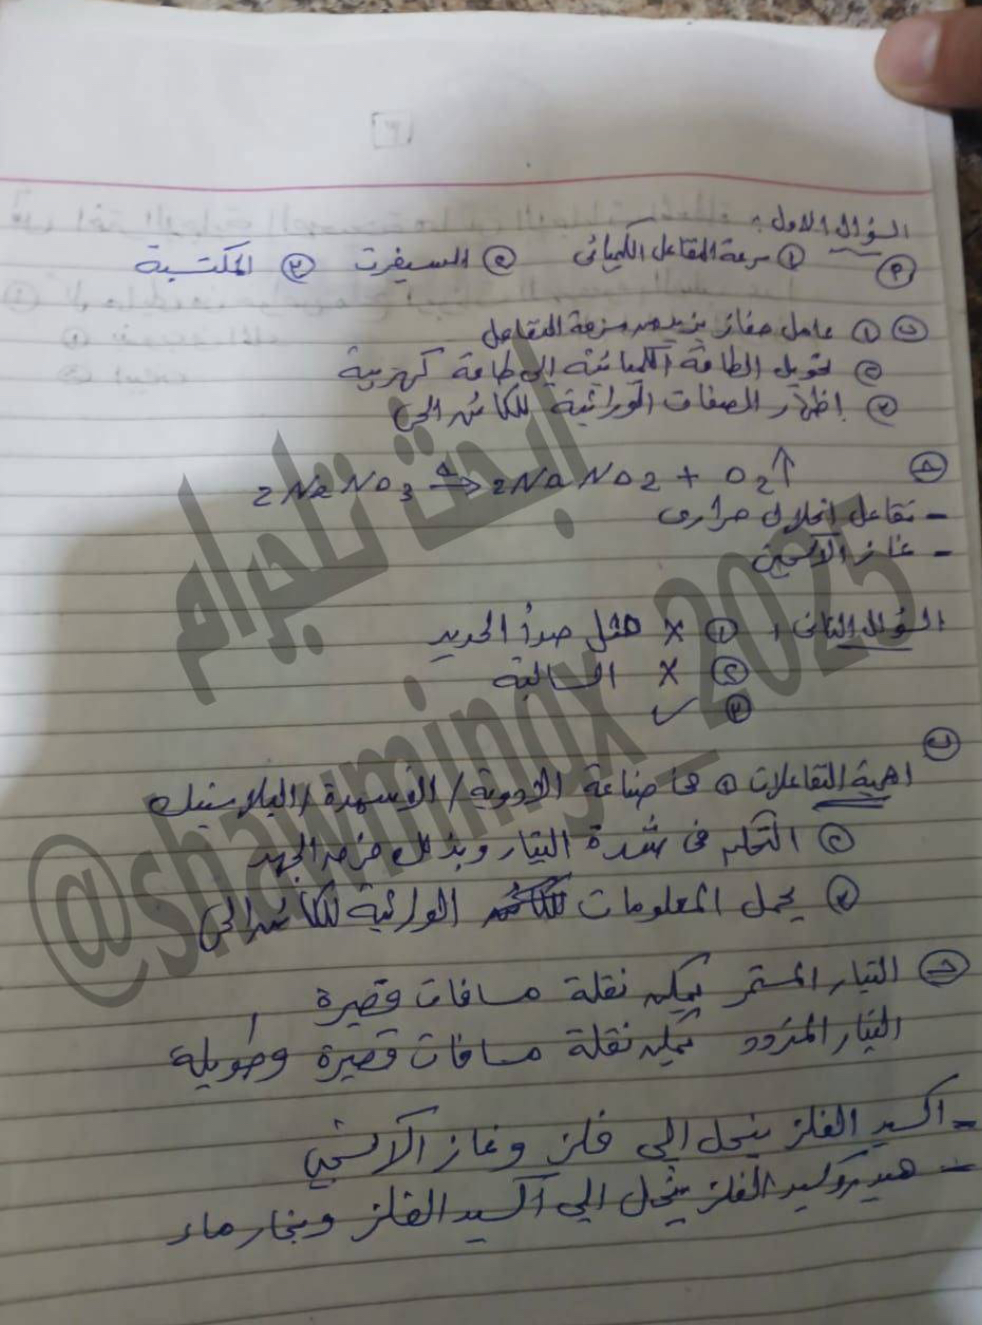 ٣
السؤال الاول :
P ① سرعة التفاعل الكيميائى ② السيفرت ③ المكتسبة
ب ① عامل حفاز يزيد من سرعة التفاعل
② تحويل الطاقة الكيميائية إلى طاقة كهربية
③ إظهار الصفات الوراثية للكائن الحى
2NaNO3 →Δ 2NaNO2 + O2↑
- تفاعل انحلال حرارى
- غاز الاكسجين
السؤال الثانى : ① X مثل صدأ الحديد
② X السالبة
③ ✓
ب
اهمية التفاعلات ① فى صناعة الأدوية / الأسمدة / البلاستيك
② التحكم فى شدة التيار وبذلك فرق الجهد
③ يحمل المعلومات الوراثية للكائن الحى
ج التيار المستمر يمكن نقلة مسافات قصيرة
التيار المتردد يمكن نقلة مسافات قصيرة وطويلة
- اكسيد الفلز ينحل إلى فلز وغاز الأكسجين
- هيدروكسيد الفلز ينحل إلى أكسيد الفلز وبخار ماء
ابحث تلجرام
@shawmingx_2025